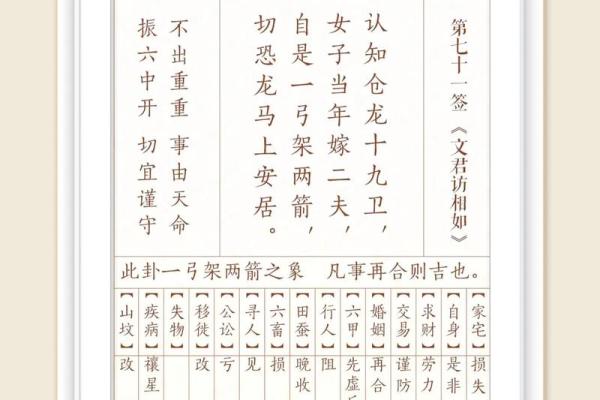 第七十一签《文君访相如》
认知仓龙十九卫，
女子当年嫁二夫，
自是一弓架两箭，
切恐龙马上安居。
不出重重 事由天命
振六中开 切宜谨守
此卦一弓架两箭之象 凡事再合则吉也。
【家宅】损失
【自身】是非
【求财】劳力
【交易】谨防
【婚姻】再合
【六甲】先虚
【行人】阻
【田蚕】晚收
【六畜】损
【寻人】见
【公讼】亏
【移徙】改
【失物】
【疾病】禳星
【山坟】改